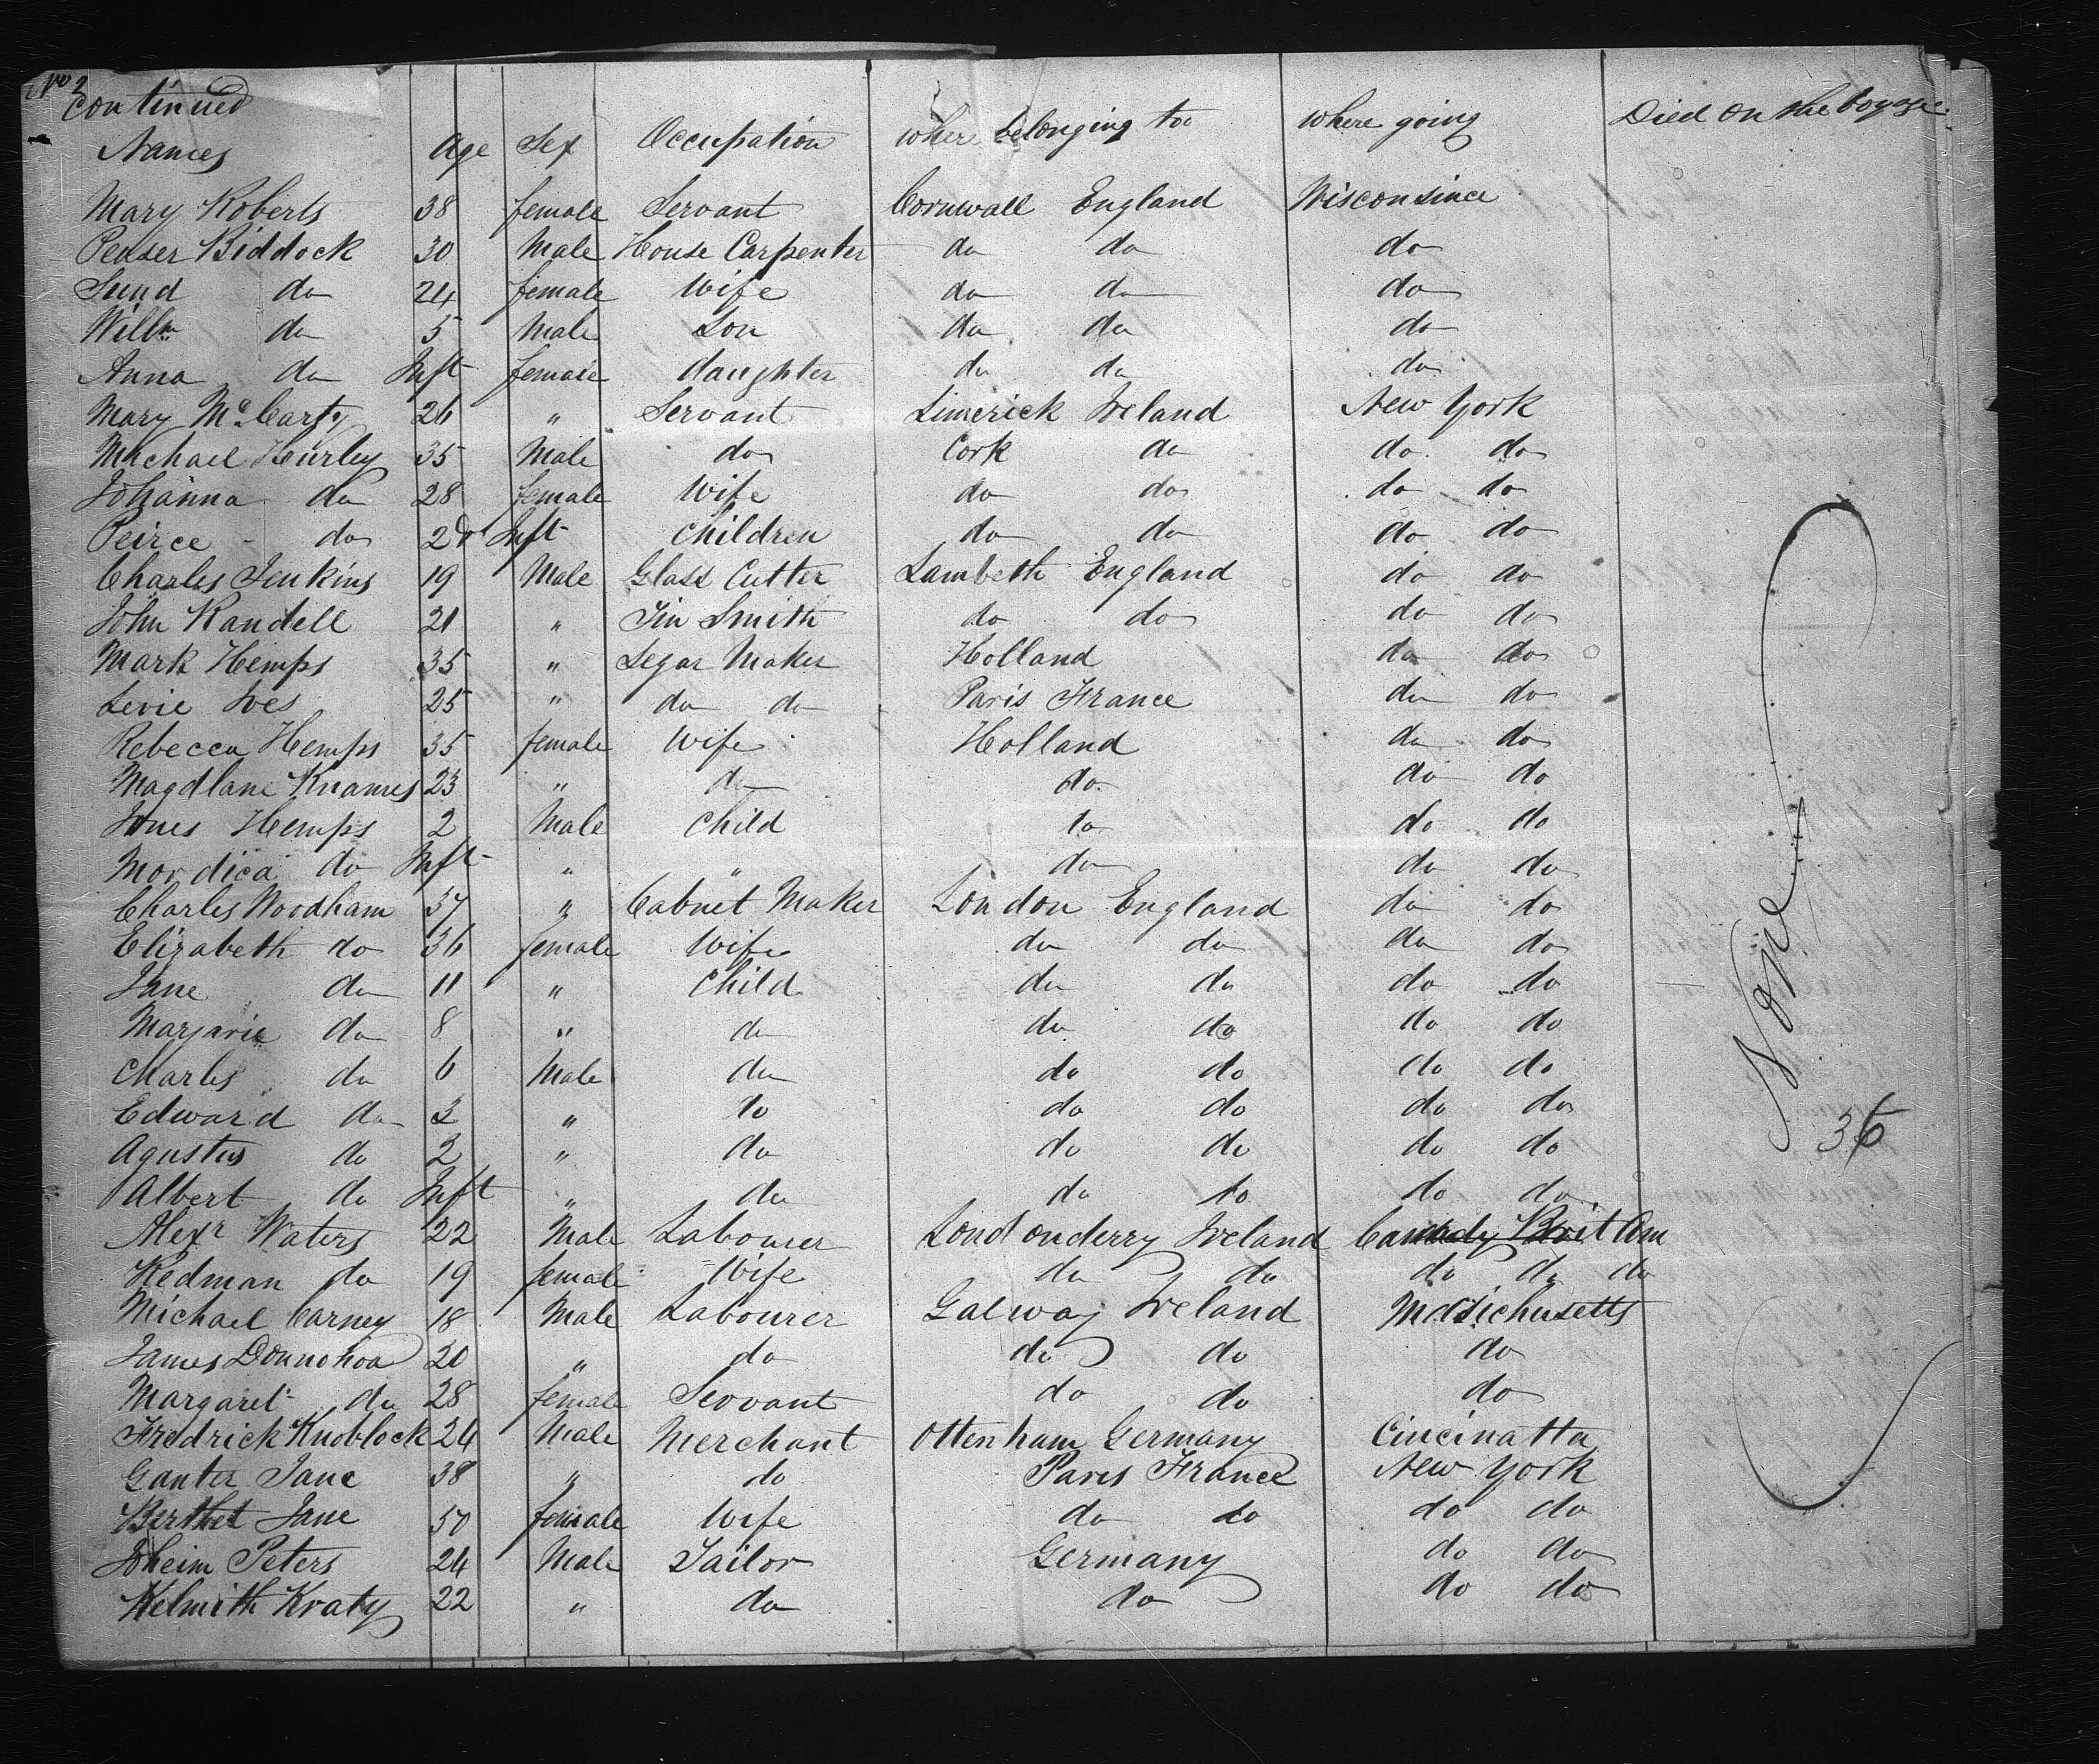 No 2
Continued
Names Age Sex Occupation where belonging to where going Died on the Voyage
Mary Roberts 38 female Servant Cornwall England Wisconsince
Peaser Biddock 30 Male House Carpenter do do do
do 24 female Wife do do do
Willm do 5 Male Son do do do
Anna do Inft female daughter do do do
Mary McCarty 26 " Servant Limerick Ireland New York
Michael Hurley 35 Male do Cork do do do
Johanna do 28 female Wife do do do do
Peirce - do 2 & Inft Children do do do do
Charles Jenkins 19 Male Glass Cutter Lambeth England do do
John Randell 21 " Tin Smith do do do do
Mark Hemps 35 " Segar Maker Holland do do
Levie Ives 25 " do do Paris France do do
Rebecca Hemps 35 female Wife Holland do do
Magdlane Knames 23 " do do do do
Jones Hemps 2 Male Child do do do
Mordica do Inft " " do do do
Charles Woodham 37 " Cabnet Maker London England do do
Elizabeth do 36 female Wife do do do do
Jane do 11 " Child do do do do
Marjarie do 8 " do do do do do
Charles do 6 Male do do do do do
Edward do 3 " do do do do do
Agustus do 2 " do do do do do
Albert do Inft " do do do do do
Alexr Waters 22 Male Labourer Londonderry Ireland Canady Brit Am
Redman do 19 female Wife do do do do do
Michael Carney 18 Male Labourer Galway Ireland Massichusetts
James Donnohoa 20 " do do do do
Margaret do 28 female Servant do do do
Fredrick Knoblock 24 Male Merchant Ottenham Germany Cincinatta
Ganter Jane 38 " do Paris France New York
Berthet Jane 50 female Wife do do do do
Joheim Peters 24 Male Tailor Germany do do
Helmith Kraty 22 " do do do do
None
36